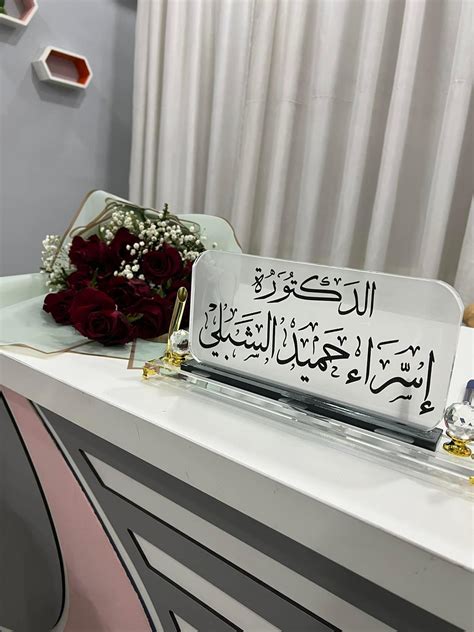 الدكتورة
إسراء حميد الشبلي